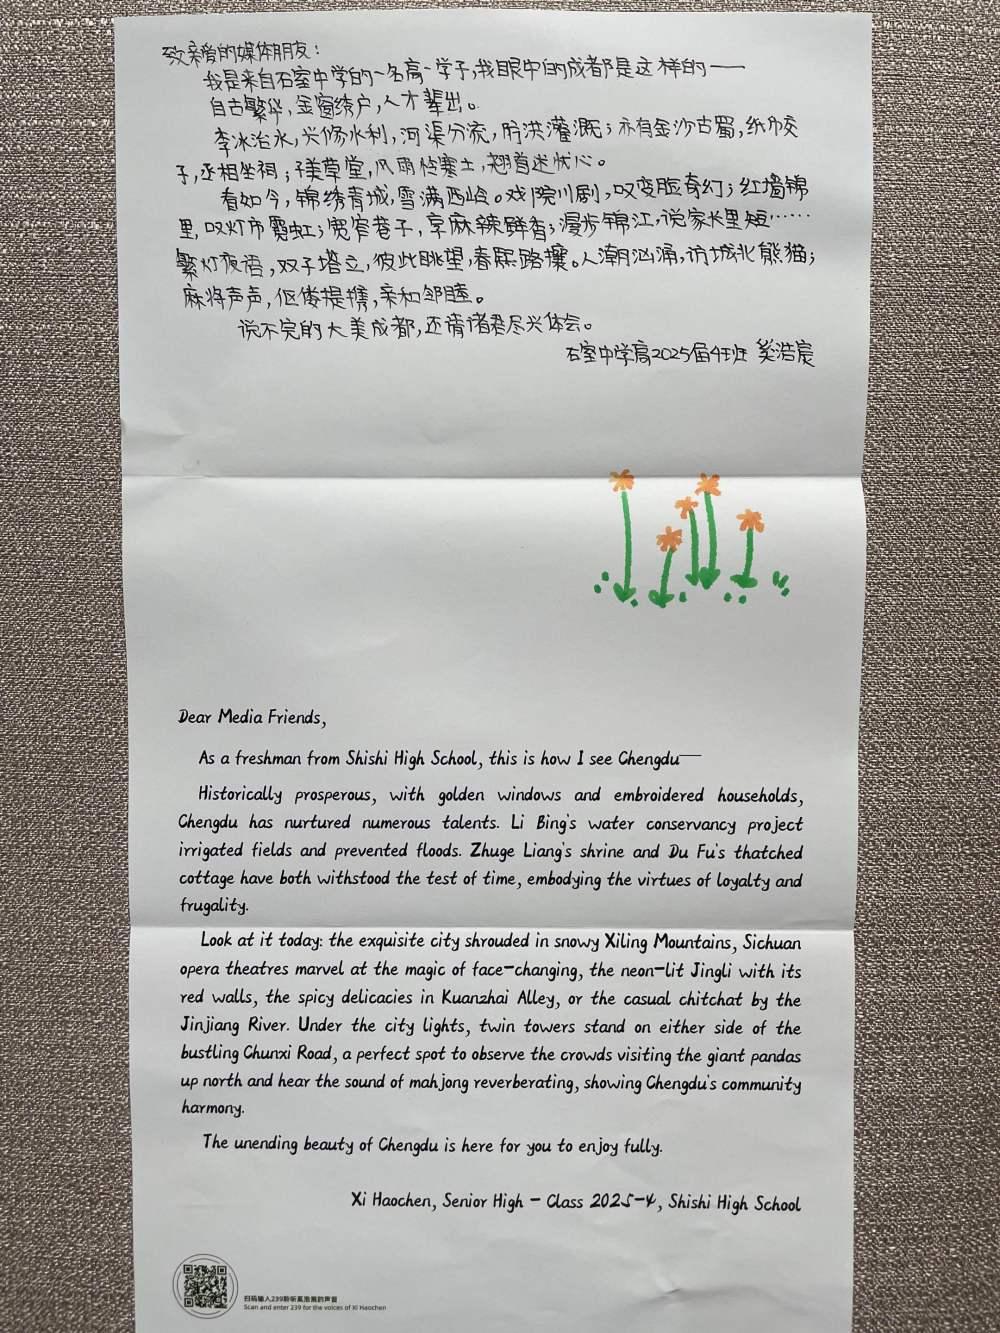 致亲爱的媒体朋友：
我是来自石室中学的一名高一学子，我眼中的成都是这样的——
自古繁华，金窗绣户，人才辈出。
李冰治水，兴修水利，河渠分流，防洪灌溉；亦有金沙古蜀，纸币交
子，丞相坐祠；子美草堂，风雨忆寒士，翘首述忧心。
看如今，锦绣青城，雪满西岭。戏院川剧，叹变脸奇幻；红墙锦
里，叹灯市霓虹；宽窄巷子，享麻辣鲜香；漫步锦江，说家长里短……
繁灯夜语，双子塔立，彼此眺望，春熙路攘。人潮汹涌，访城北熊猫；
麻将声声，伛偻提携，亲和邻睦。
说不完的大美成都，还请诸君尽兴体会。
石室中学高2025届4班 奚浩宸
Dear Media Friends,
As a freshman from Shishi High School, this is how I see Chengdu——
Historically prosperous, with golden windows and embroidered households,
Chengdu has nurtured numerous talents. Li Bing's water conservancy project
irrigated fields and prevented floods. Zhuge Liang's shrine and Du Fu's thatched
cottage have both withstood the test of time, embodying the virtues of loyalty and
frugality.
Look at it today: the exquisite city shrouded in snowy Xiling Mountains, Sichuan
opera theatres marvel at the magic of face-changing, the neon-lit Jingli with its
red walls, the spicy delicacies in Kuanzhai Alley, or the casual chitchat by the
Jinjiang River. Under the city lights, twin towers stand on either side of the
bustling Chunxi Road, a perfect spot to observe the crowds visiting the giant pandas
up north and hear the sound of mahjong reverberating, showing Chengdu's community
harmony.
The unending beauty of Chengdu is here for you to enjoy fully.
Xi Haochen, Senior High - Class 2025-4, Shishi High School
扫码输入239聆听奚浩宸的声音
Scan and enter 239 for the voices of Xi Haochen